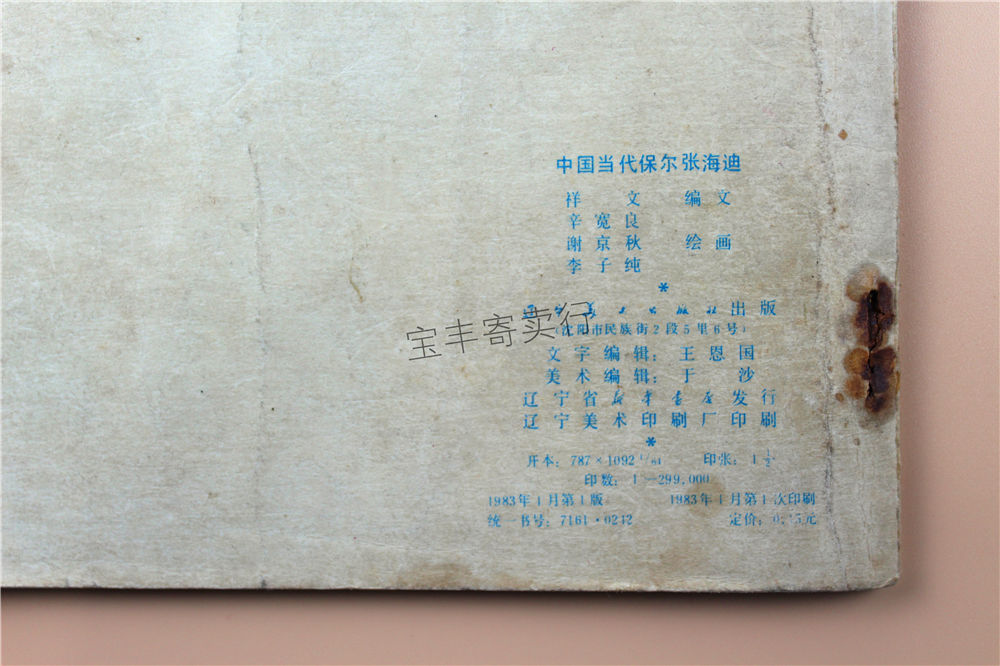 中国当代保尔张海迪
祥文 编文
辛宽良
谢京秋 绘画
李子纯
*
美术出版社出版
(沈阳市民族街2段5里6号)
文字编辑：王恩国
美术编辑：于沙
辽宁省新华书店发行
辽宁美术印刷厂印刷
*
开本：787×1092 1/64 印张：1 1/2
印数：1—299,000
1983年1月第1版 1983年1月第1次印刷
统一书号：7161·0242 定价：元
宝丰寄卖行